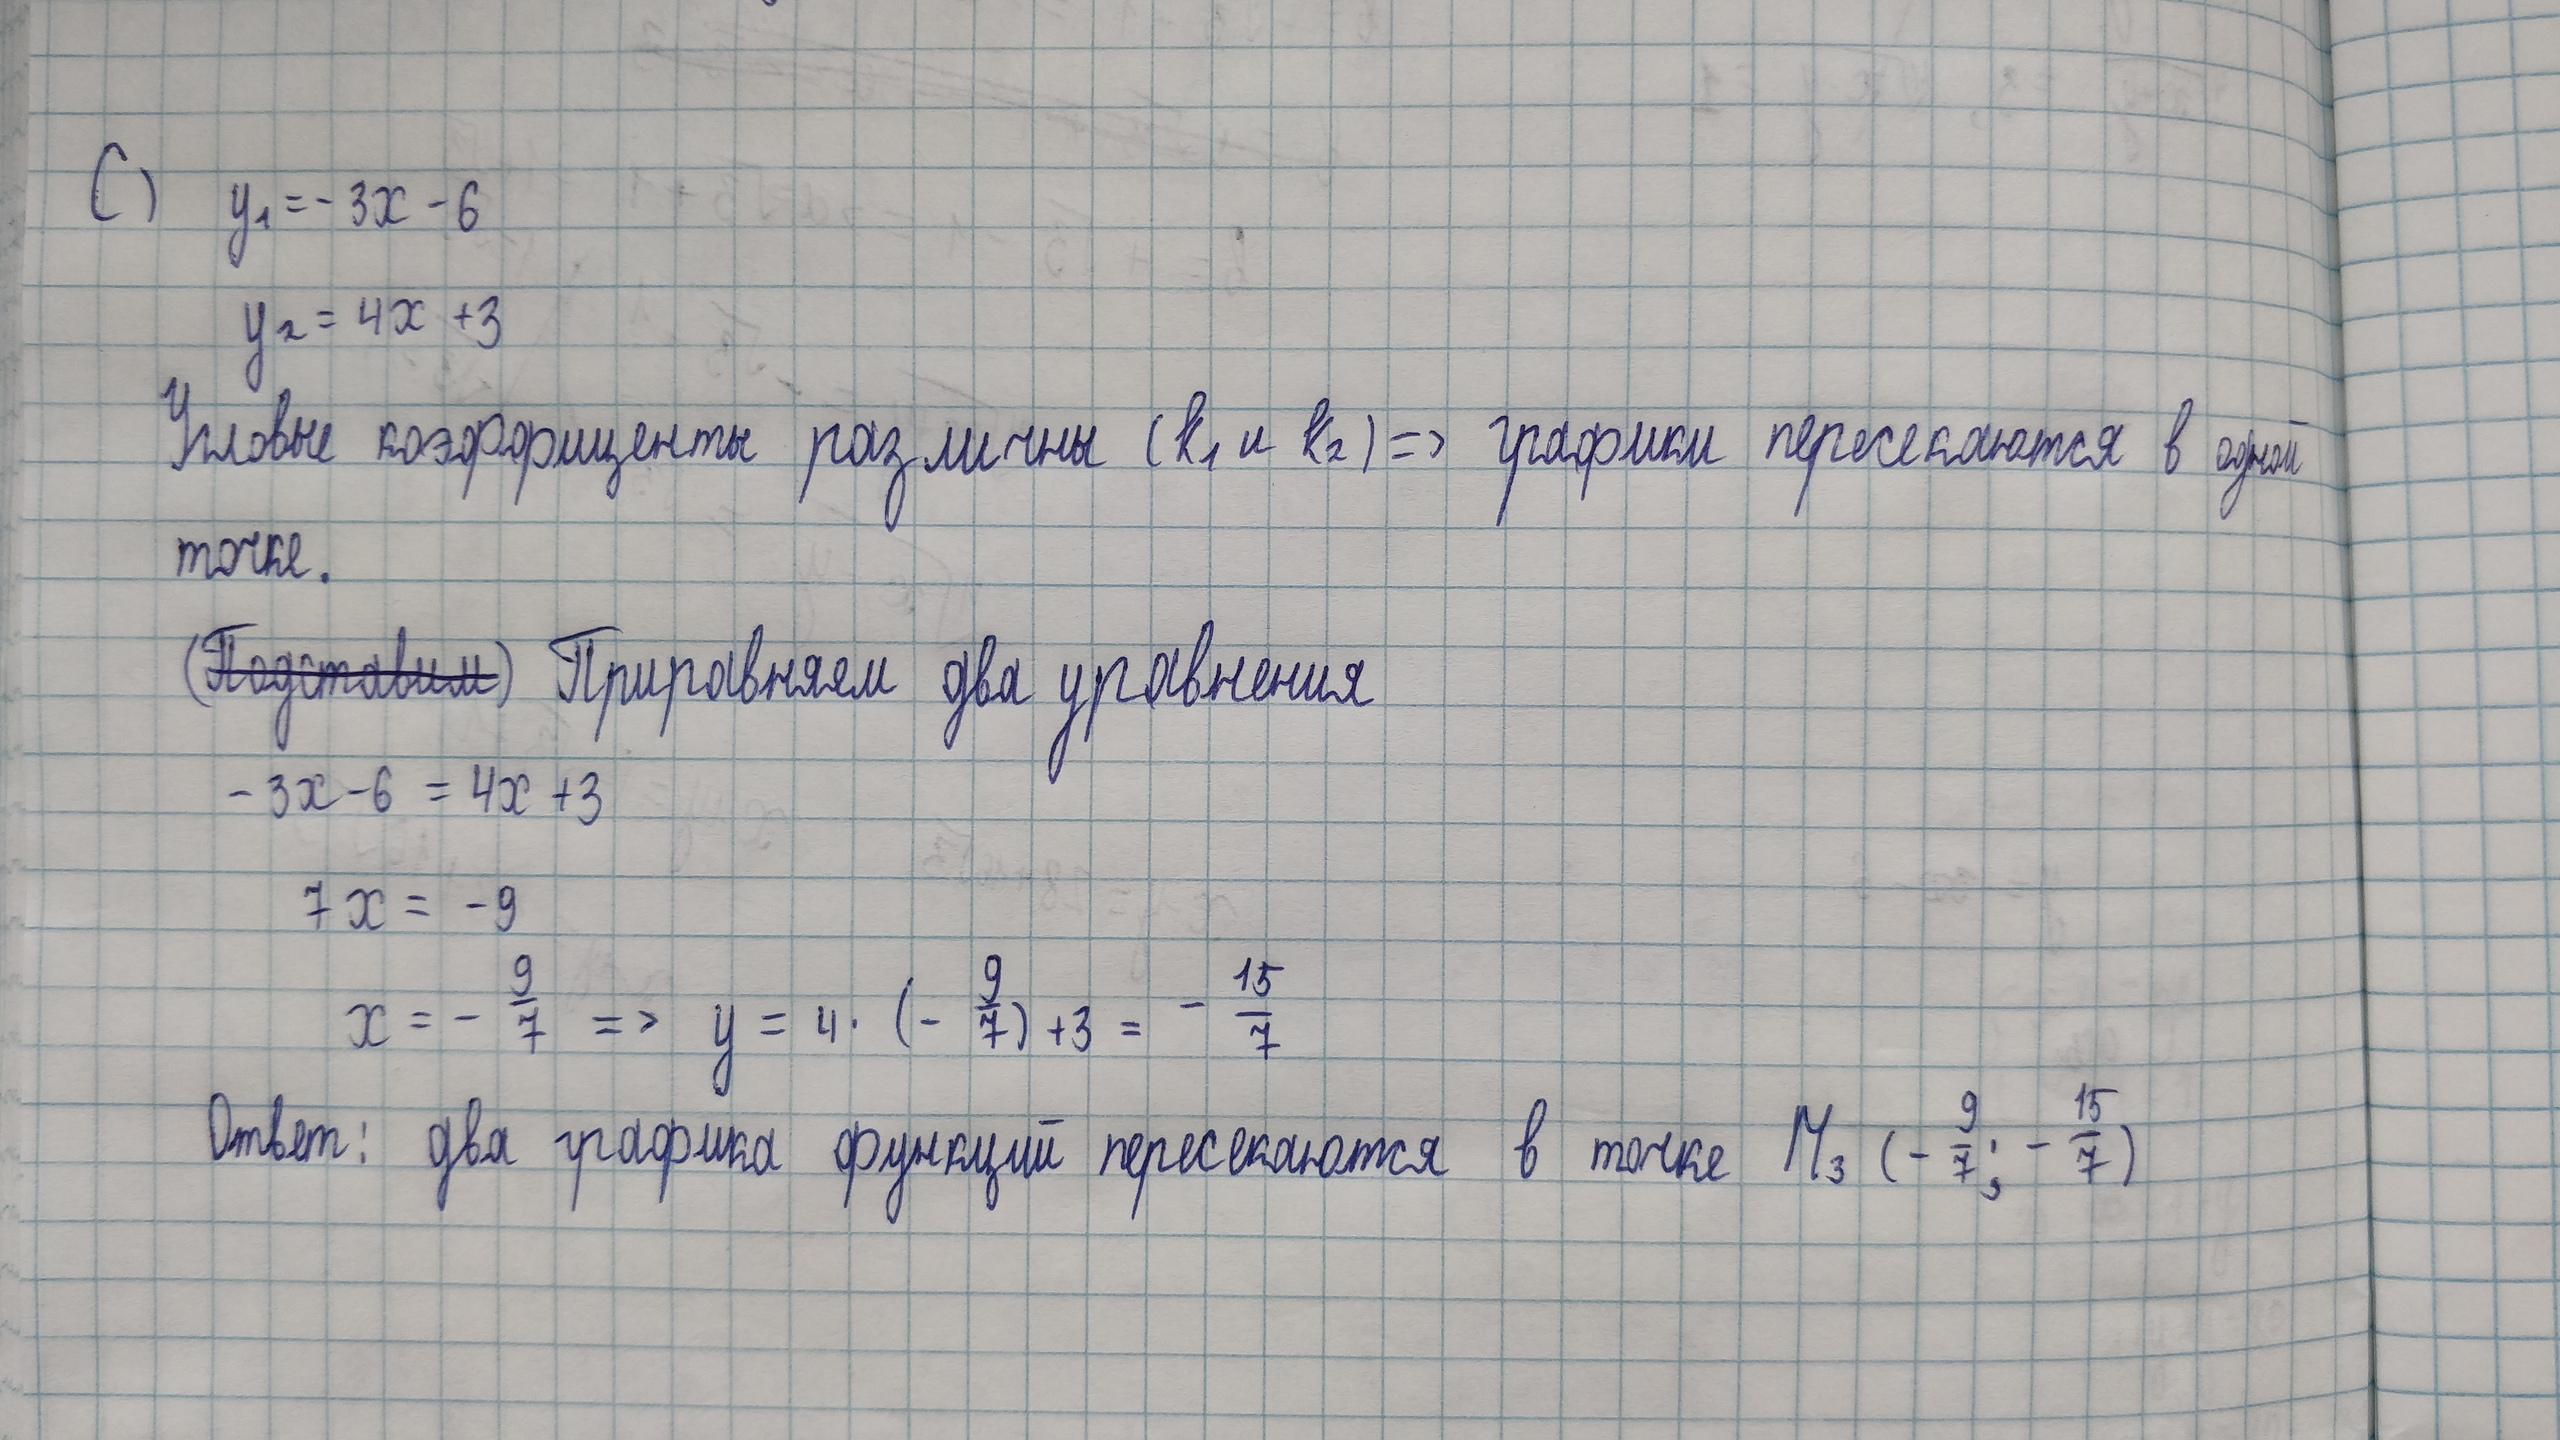 C) y₁ = -3x - 6
y₂ = 4x + 3
Угловые коэффициенты различны (k₁ и k₂) => графики пересекаются в одной
точке.
(Подставим) Приравняем два уравнения
-3x - 6 = 4x + 3
7x = -9
x = - 9/7 => y = 4 · (- 9/7) + 3 = - 15/7
Ответ: два графика функций пересекаются в точке M₃ (- 9/7; - 15/7)